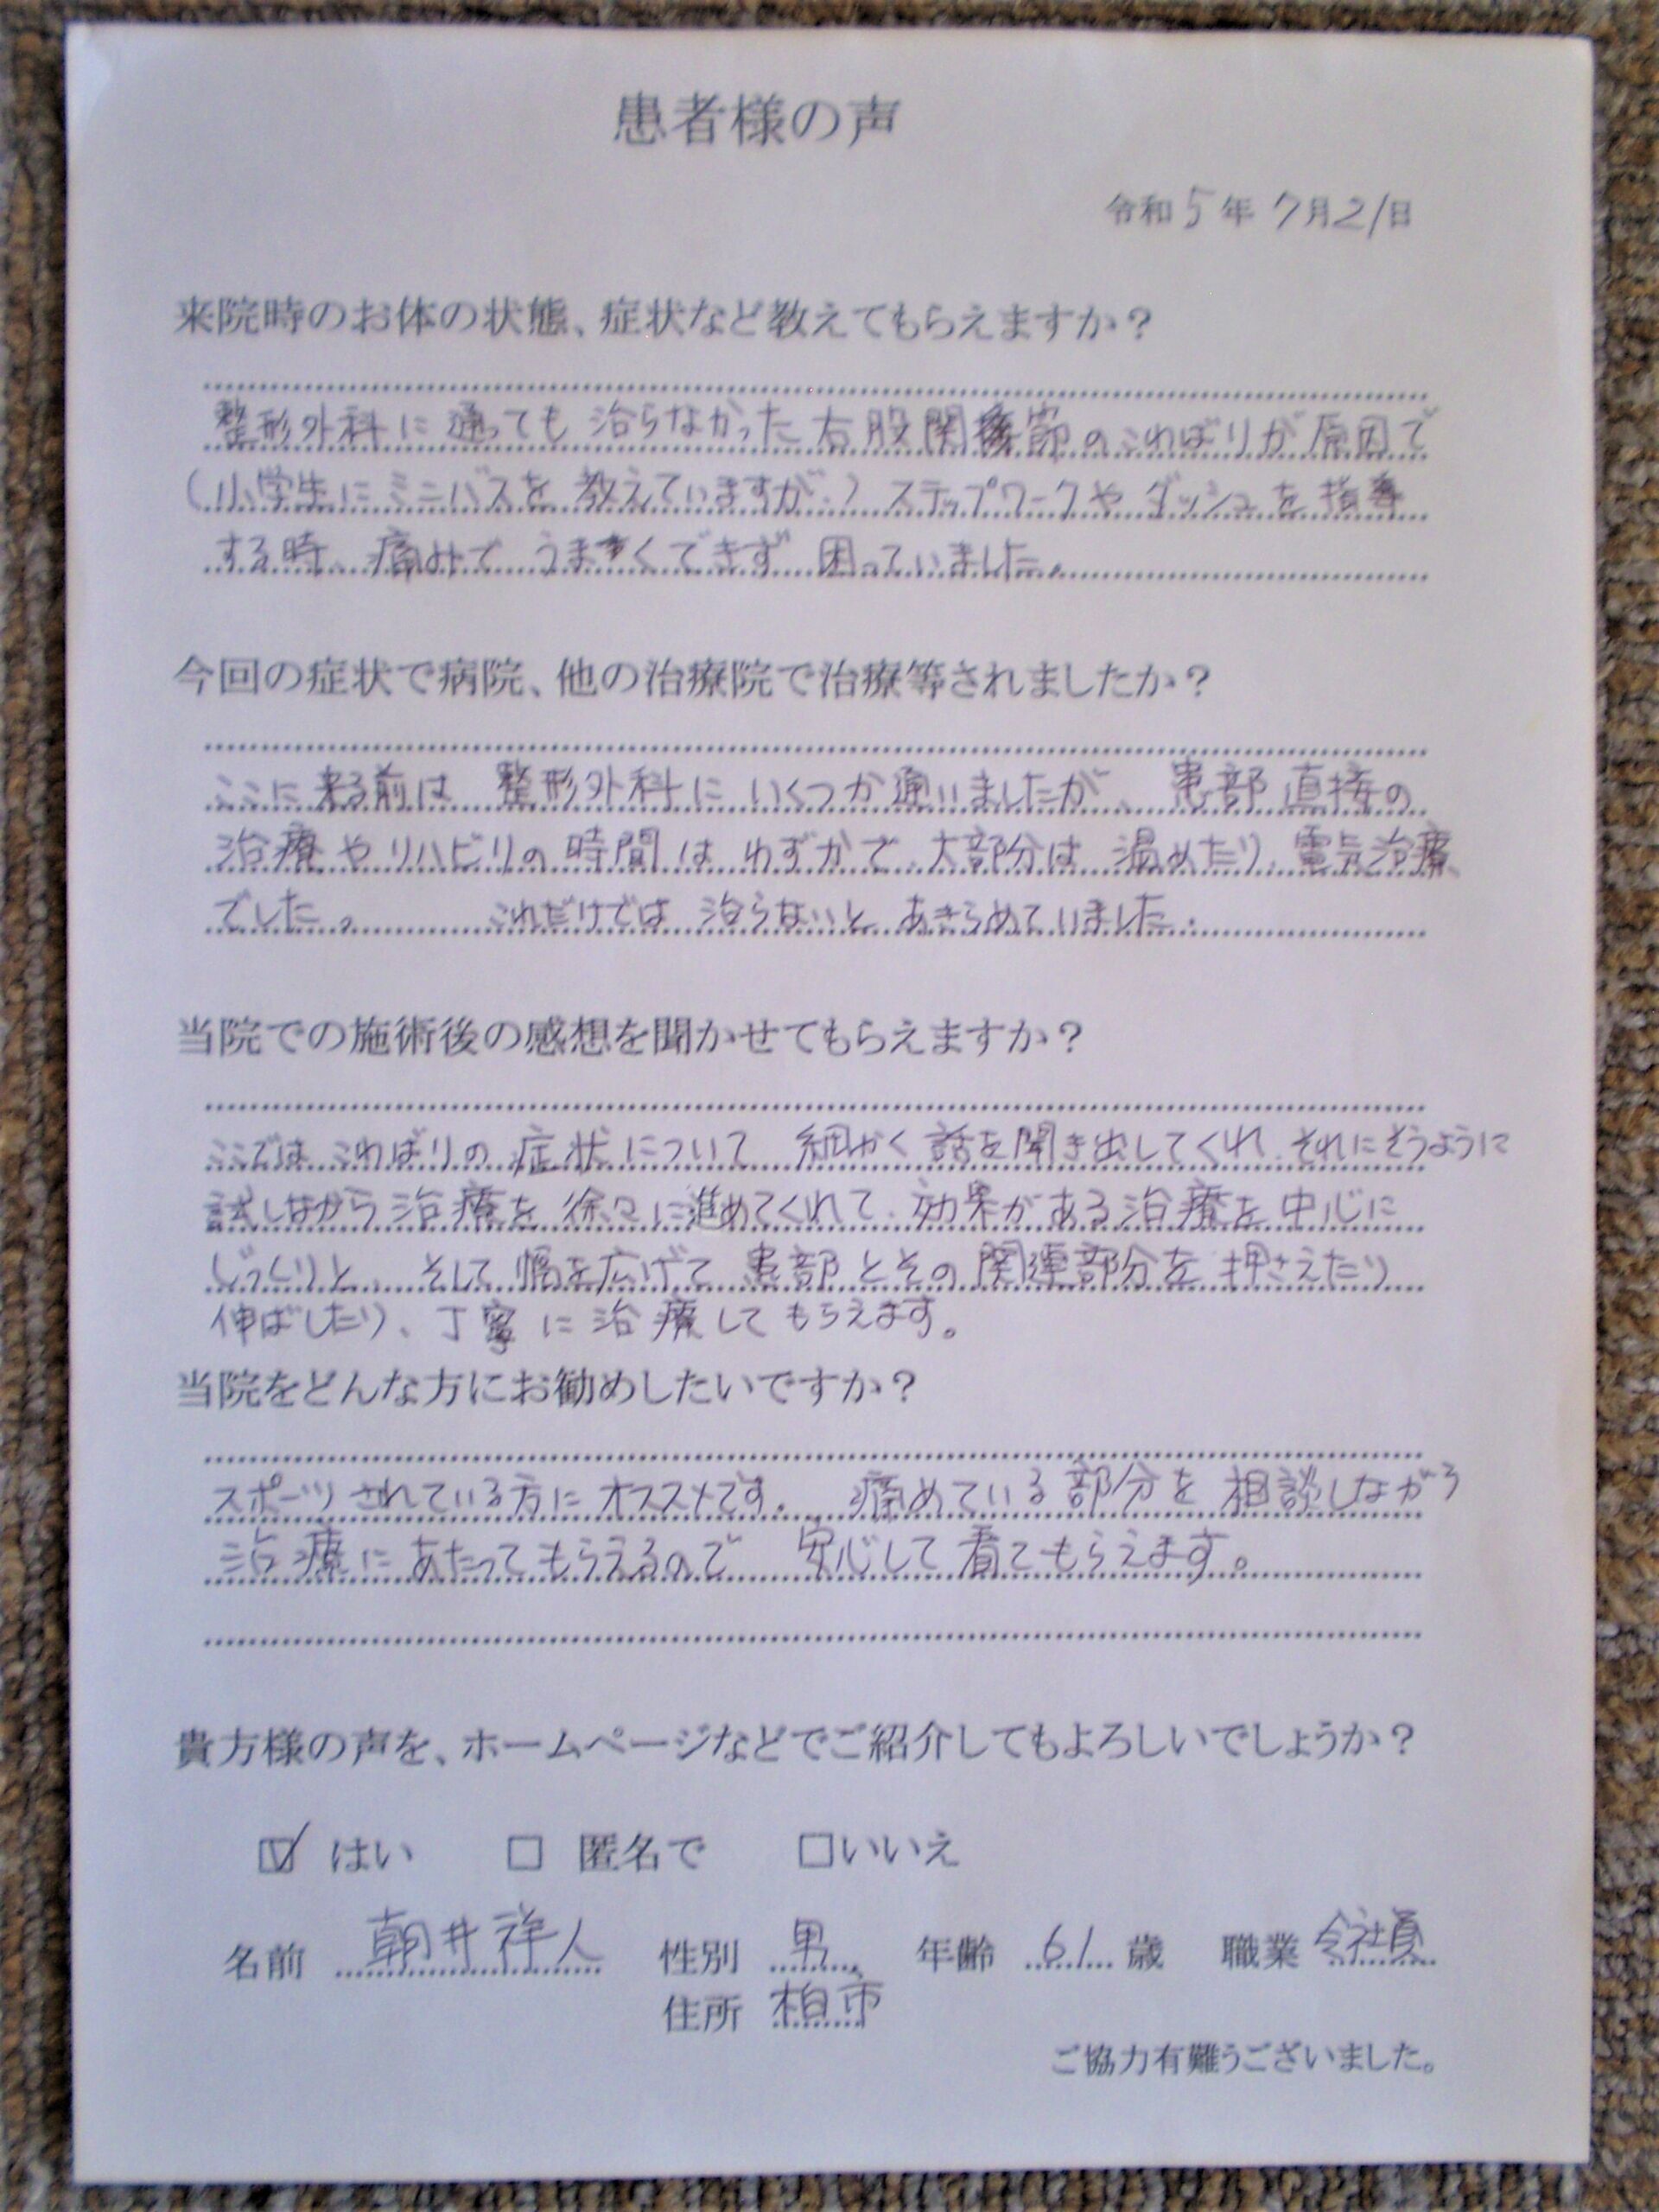 患者様の声
令和5年7月21日
来院時のお体の状態、症状など教えてもらえますか？
整形外科に通っても治らなかった右股関節のこわばりが原因で
(小学生にミニバスを教えていますが)ステップワークやダッシュを指導
する時、痛みでうまくできず困っていました。
今回の症状で病院、他の治療院で治療等されましたか？
ここに来る前は整形外科にいくつか通いましたが、患部直接の
治療やリハビリの時間はわずかで、大部分は温めたり、電気治療
でした。これだけでは治らないとあきらめていました。
当院での施術後の感想を聞かせてもらえますか？
ここではこわばりの症状について細かく話を聞き出してくれ、それにそうように
試しながら治療を徐々に進めてくれて、効果がある治療を中心に
じっくりと、そして幅を広げて患部とその関連部分を押さえたり
伸ばしたり、丁寧に治療してもらえます。
当院をどんな方にお勧めしたいですか？
スポーツされている方にオススメです。痛めている部分を相談しながら
治療にあたってもらえるので安心して看てもらえます。
貴方様の声を、ホームページなどでご紹介してもよろしいでしょうか？
☑ はい □ 匿名で □いいえ
名前 朝井祥人 性別 男 年齢 61歳 職業 会社員
住所 柏市
ご協力有難うございました。